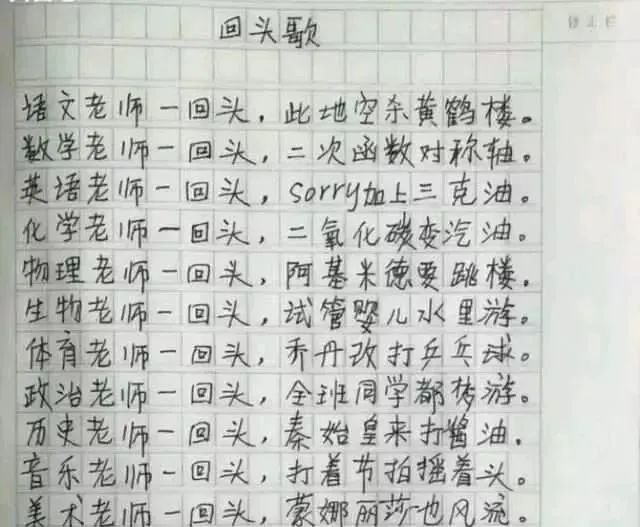 回头歌
语文老师一回头，此地空杀黄鹤楼。
数学老师一回头，二次函数对称轴。
英语老师一回头，sorry加上三克油。
化学老师一回头，二氧化碳变汽油。
物理老师一回头，阿基米德要跳楼。
生物老师一回头，试管婴儿水里游。
体育老师一回头，乔丹改打乒乓球。
政治老师一回头，全班同学都梦游。
历史老师一回头，秦始皇来打酱油。
音乐老师一回头，打着节拍摇着头。
美术老师一回头，蒙娜丽莎也风流。